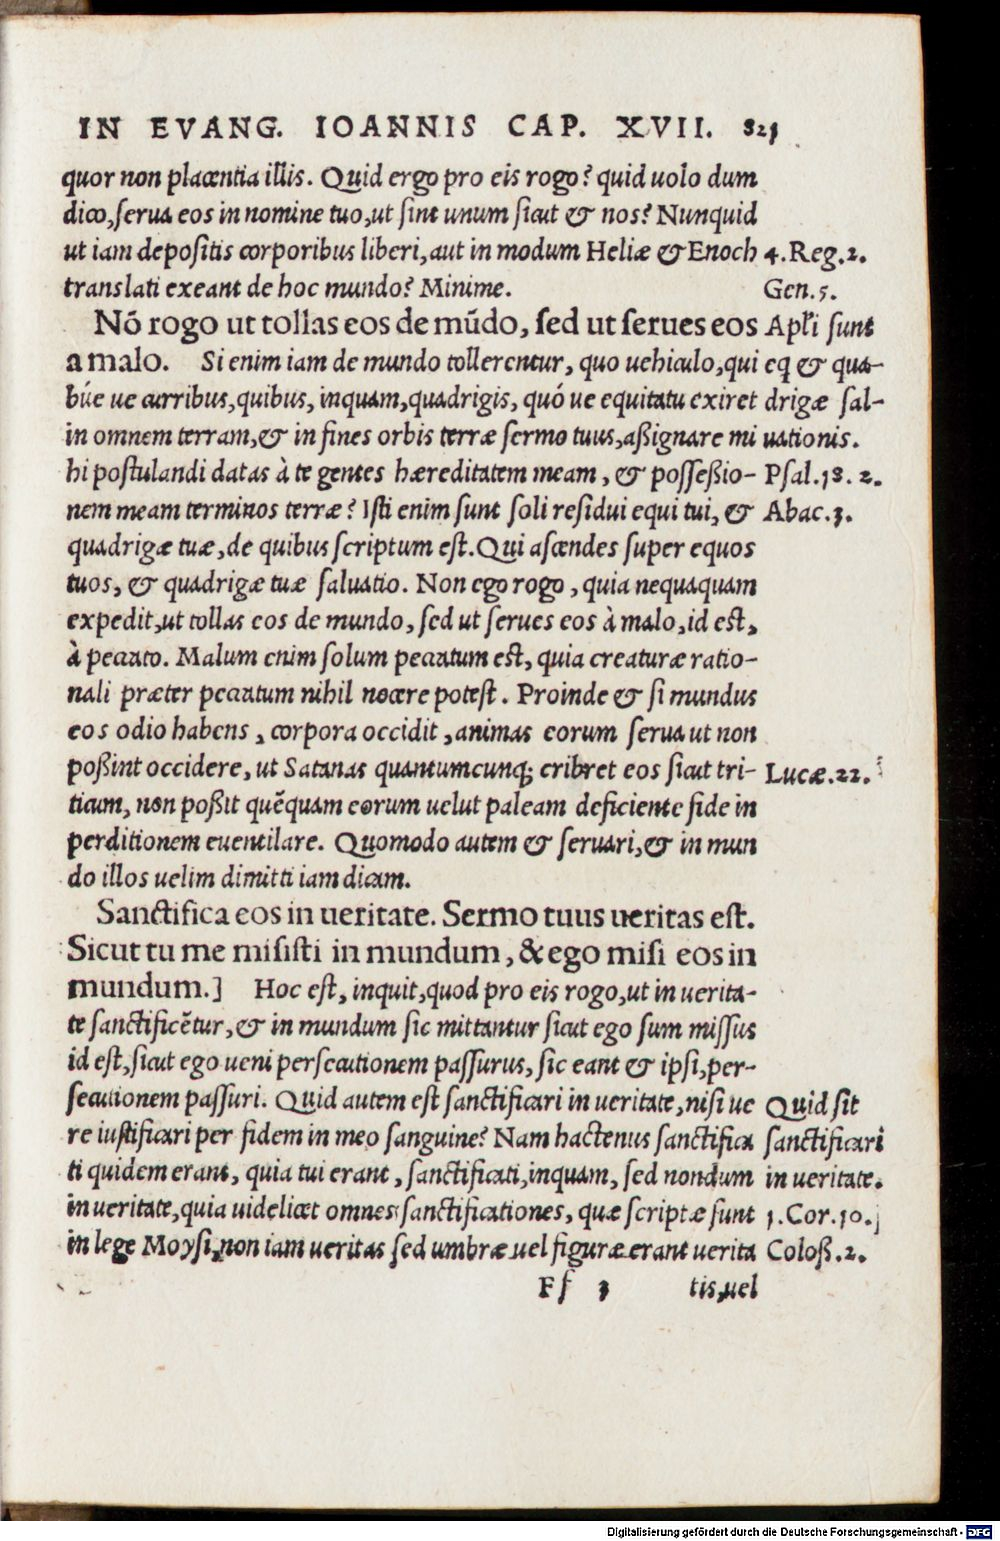 IN EVANG. IOANNIS CAP. XVII. 821
quor non placentia illis. Quid ergo pro eis rogo? quid uolo dum
dico, serua eos in nomine tuo, ut sint unum sicut & nos? Nunquid
ut iam depositis corporibus liberi, aut in modum Heliæ & Enoch 4. Reg. 2.
translati exeant de hoc mundo? Minime. Gen. 5.
Nõ rogo ut tollas eos de mũdo, sed ut serues eos Apl'i sunt
a malo. Si enim iam de mundo tollerentur, quo uehiculo, qui eq & qua-
búe ue curribus, quibus, inquam, quadrigis, quó ue equitatu exiret drigæ sal-
in omnem terram, & in fines orbis terræ sermo tuus, aßignare mi uationis.
hi postulandi datas à te gentes hæreditatem meam, & possessio- Psal. 18. 2.
nem meam terminos terræ? Isti enim sunt soli residui equi tui, & Abac. 3.
quadrigæ tuæ, de quibus scriptum est. Qui ascendes super equos
tuos, & quadrigæ tuæ saluatio. Non ego rogo, quia nequaquam
expedit, ut tollas eos de mundo, sed ut serues eos à malo, id est,
à peccato. Malum enim solum peccatum est, quia creaturæ ratio-
nali præter peccatum nihil nocere potest. Proinde & si mundus
eos odio habens, corpora occidit, animas eorum serua ut non
poßint occidere, ut Satanas quantumcunq; cribret eos sicut tri- Lucæ. 22.
ticum, non poßit quẽquam eorum uelut paleam deficiente fide in
perditionem euentilare. Quomodo autem & seruari, & in mun
do illos uelim dimitti iam dicam.
Sanctifica eos in ueritate. Sermo tuus ueritas est.
Sicut tu me misisti in mundum, & ego misi eos in
mundum.] Hoc est, inquit, quod pro eis rogo, ut in uerita-
te sanctificẽtur, & in mundum sic mittantur sicut ego sum missus
id est, sicut ego ueni persecutionem passurus, sic eant & ipsi, per-
secutionem passuri. Quid autem est sanctificari in ueritate, nisi ue Quid sit
re iustificari per fidem in meo sanguine? Nam hactenus sanctifica sanctificari
ti quidem erant, quia tui erant, sanctificati, inquam, sed nondum in ueritate.
in ueritate, quia uidelicet omnes sanctificationes, quæ scriptæ sunt 1. Cor. 10.
in lege Moysi, non iam ueritas sed umbræ uel figuræ erant uerita Coloß. 2.
Ff 3 tis, uel
Digitalisierung gefördert durch die Deutsche Forschungsgemeinschaft - DFG